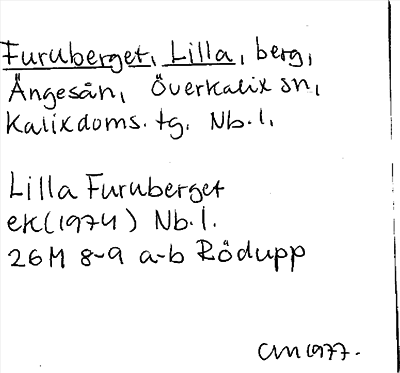 Furuberget, Lilla, berg,
Ängesån, Överkalix sn,
Kalixdoms. tg. Nb. l.
Lilla Furuberget
ek (1974) Nb. l.
26M 8-9 a-b Rödupp
CM 1977.